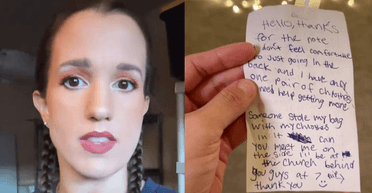 Hello, thanks
for the note
I don't feel comfortable
so just going in the
back and I have only
one pair of clothes
need help getting more
Someone stole my bag
with my clothes
in it can
you meet me on
the side I'll be at
the church behind
you guys at 7,
thank you